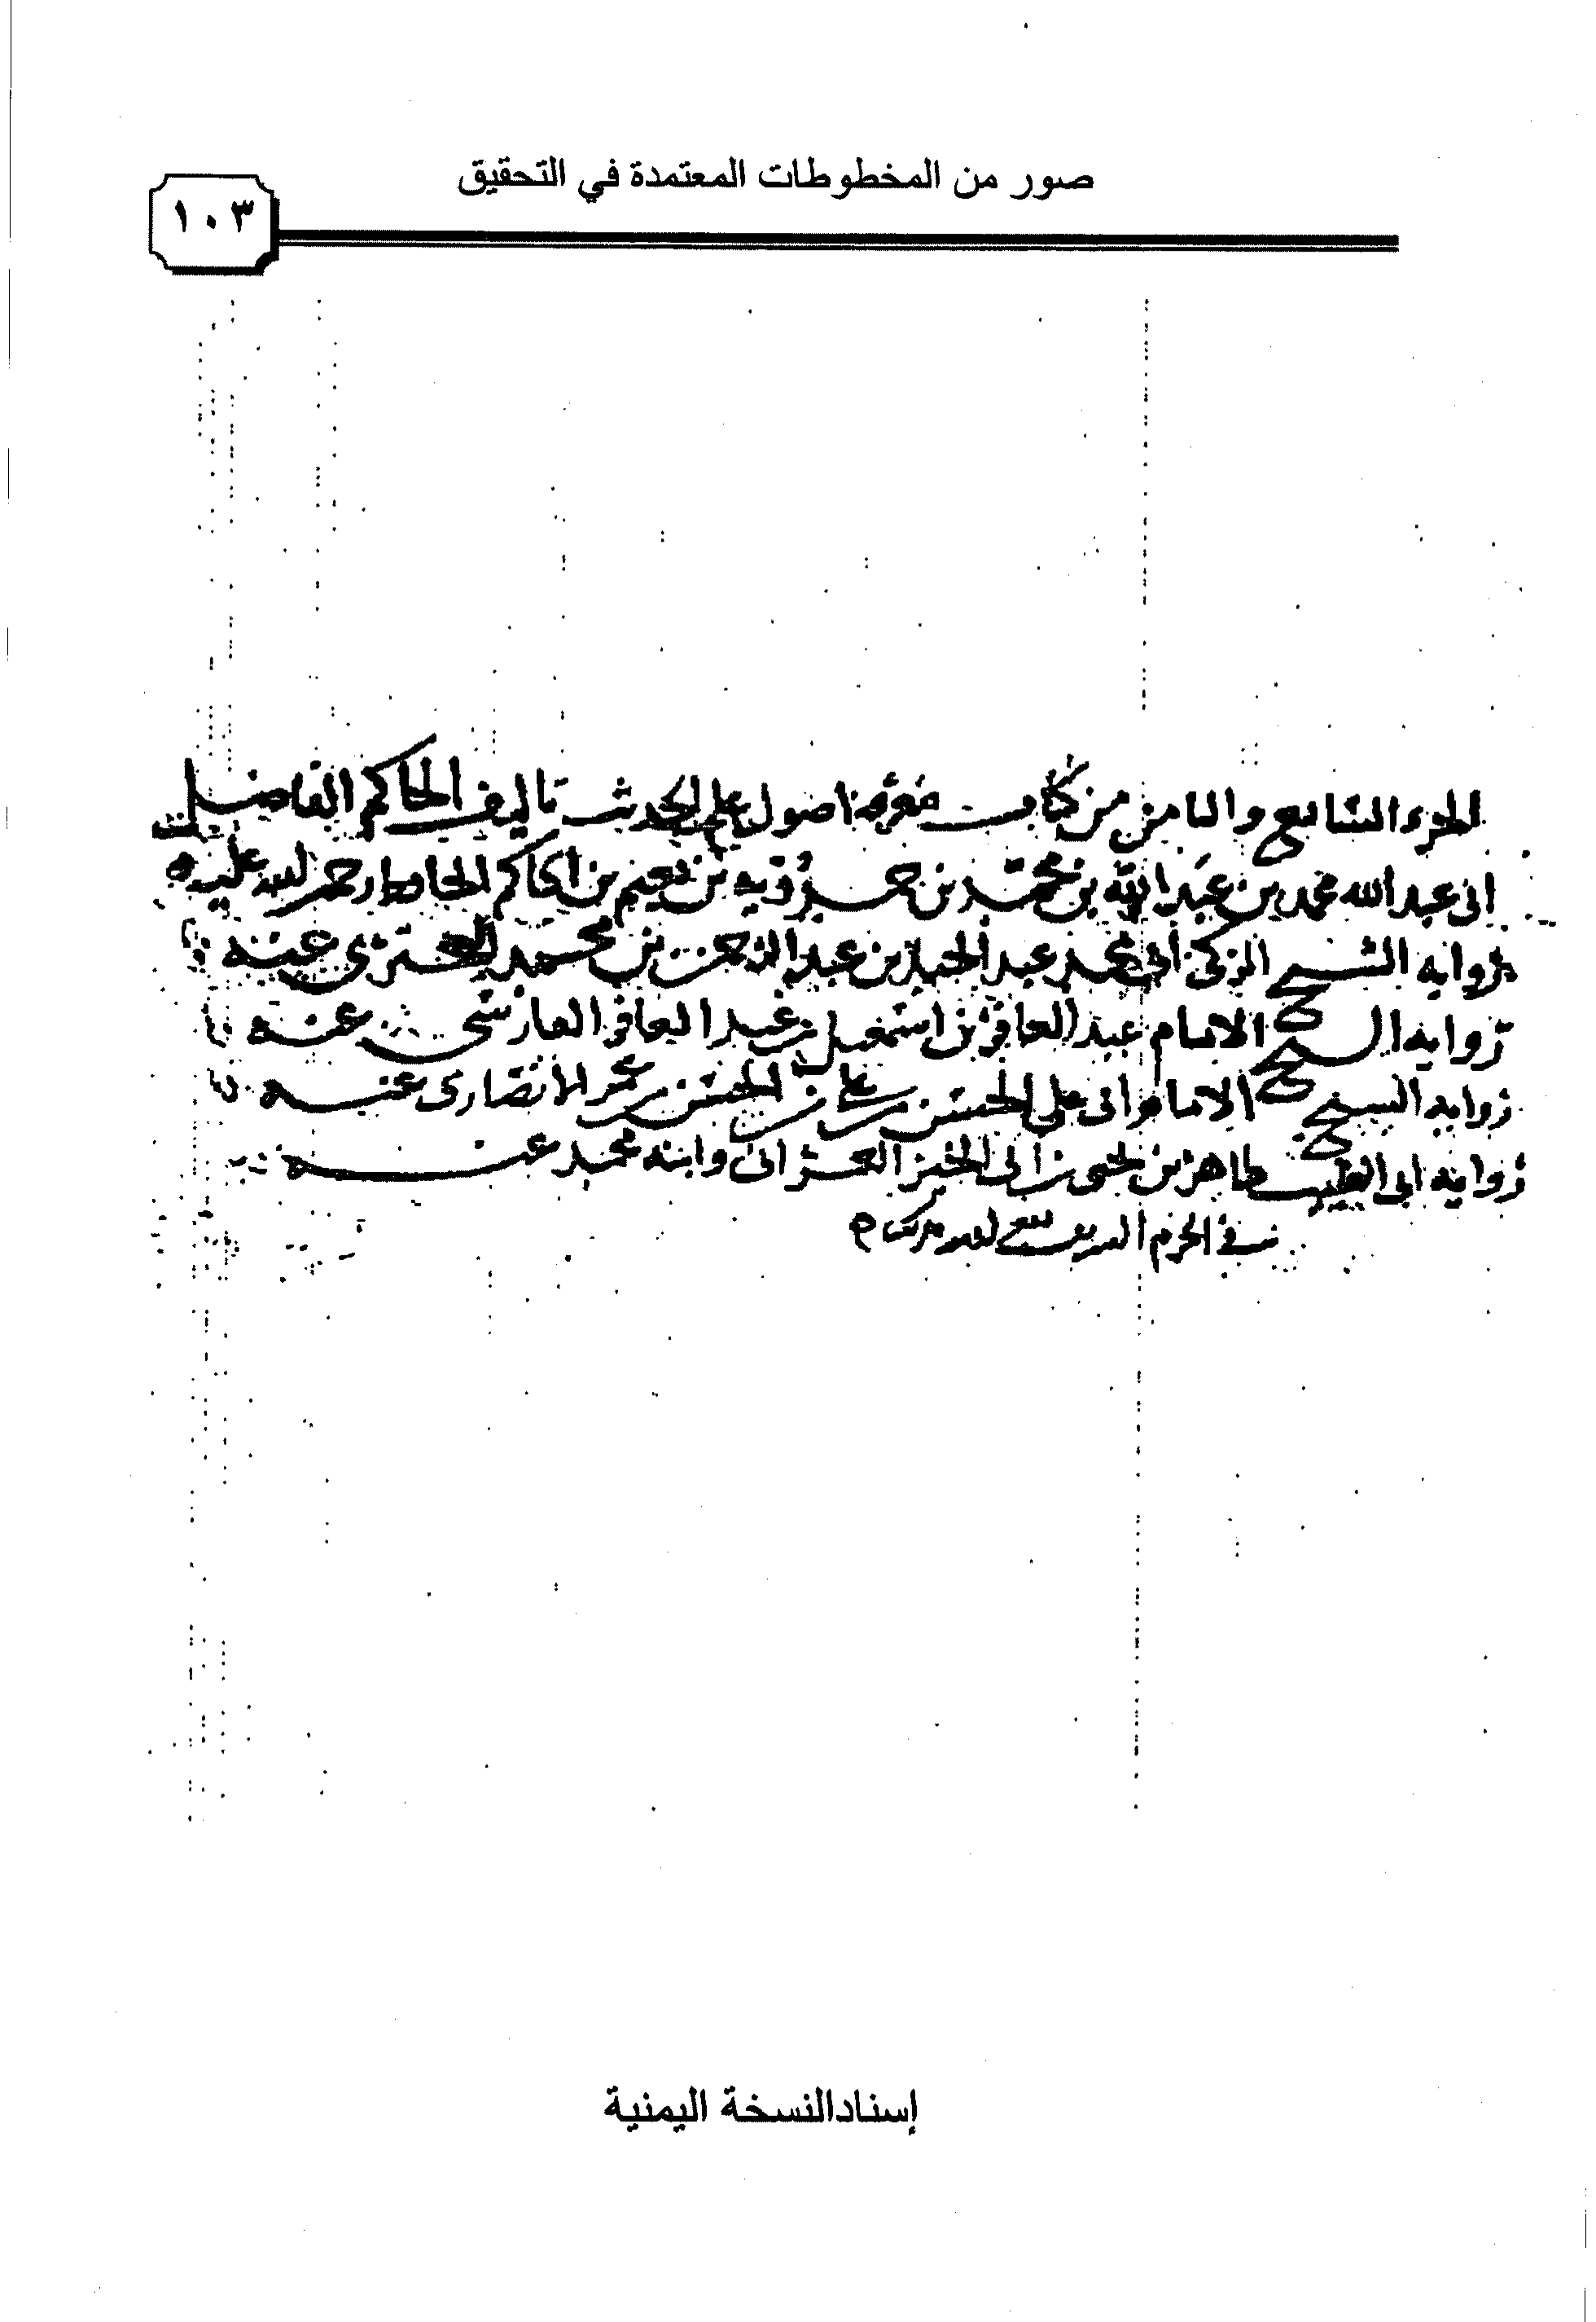 صور من المخطوطات المعتمدة في التحقيق
١٠٣
الجزء السابع والثامن من كتاب معرفة اصول علم الحديث تاليف الحاكم الفاضل
ابى عبد الله محمد بن عبد الله بن محمد بن حمدويه بن نعيم بن الحاكم الحافظ رحمه الله عليه
روايه الشيخ الزكى ابى محمد عبد الحميد بن عبد الرحمن بن محمد البحترى عنه
روايه الشيخ الامام عبد الغافر بن اسمعيل بن عبد الغافر الفارسى عنه
روايه الشيخ الامام ابى على الحسن بن على بن الحسن بن عمر الانصارى عنه
روايه ابى الطيب طاهر بن يحيى بن ابى الخير العمرانى وابنه محمد عنه
فى الحرم
إسناد النسخة اليمنية